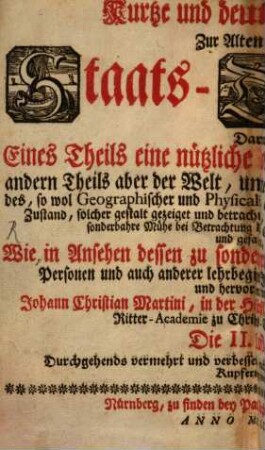 Kurtze und
Zur Alten
Staats-
Eines Theils eine nützliche
andern Theils aber der Welt,
des, so wol Geographischer und
Zustand, solcher gestalt gezeiget und
sonderbahre Mühe bei Betrachtung
und
Wie in Ansehen dessen zu
Personen und auch anderer
und
Johann Christian Martini, in der
Ritter-Academie zu
Die II.
Durchgehends vermehrt und
Nürnberg, zu finden bey
ANNO